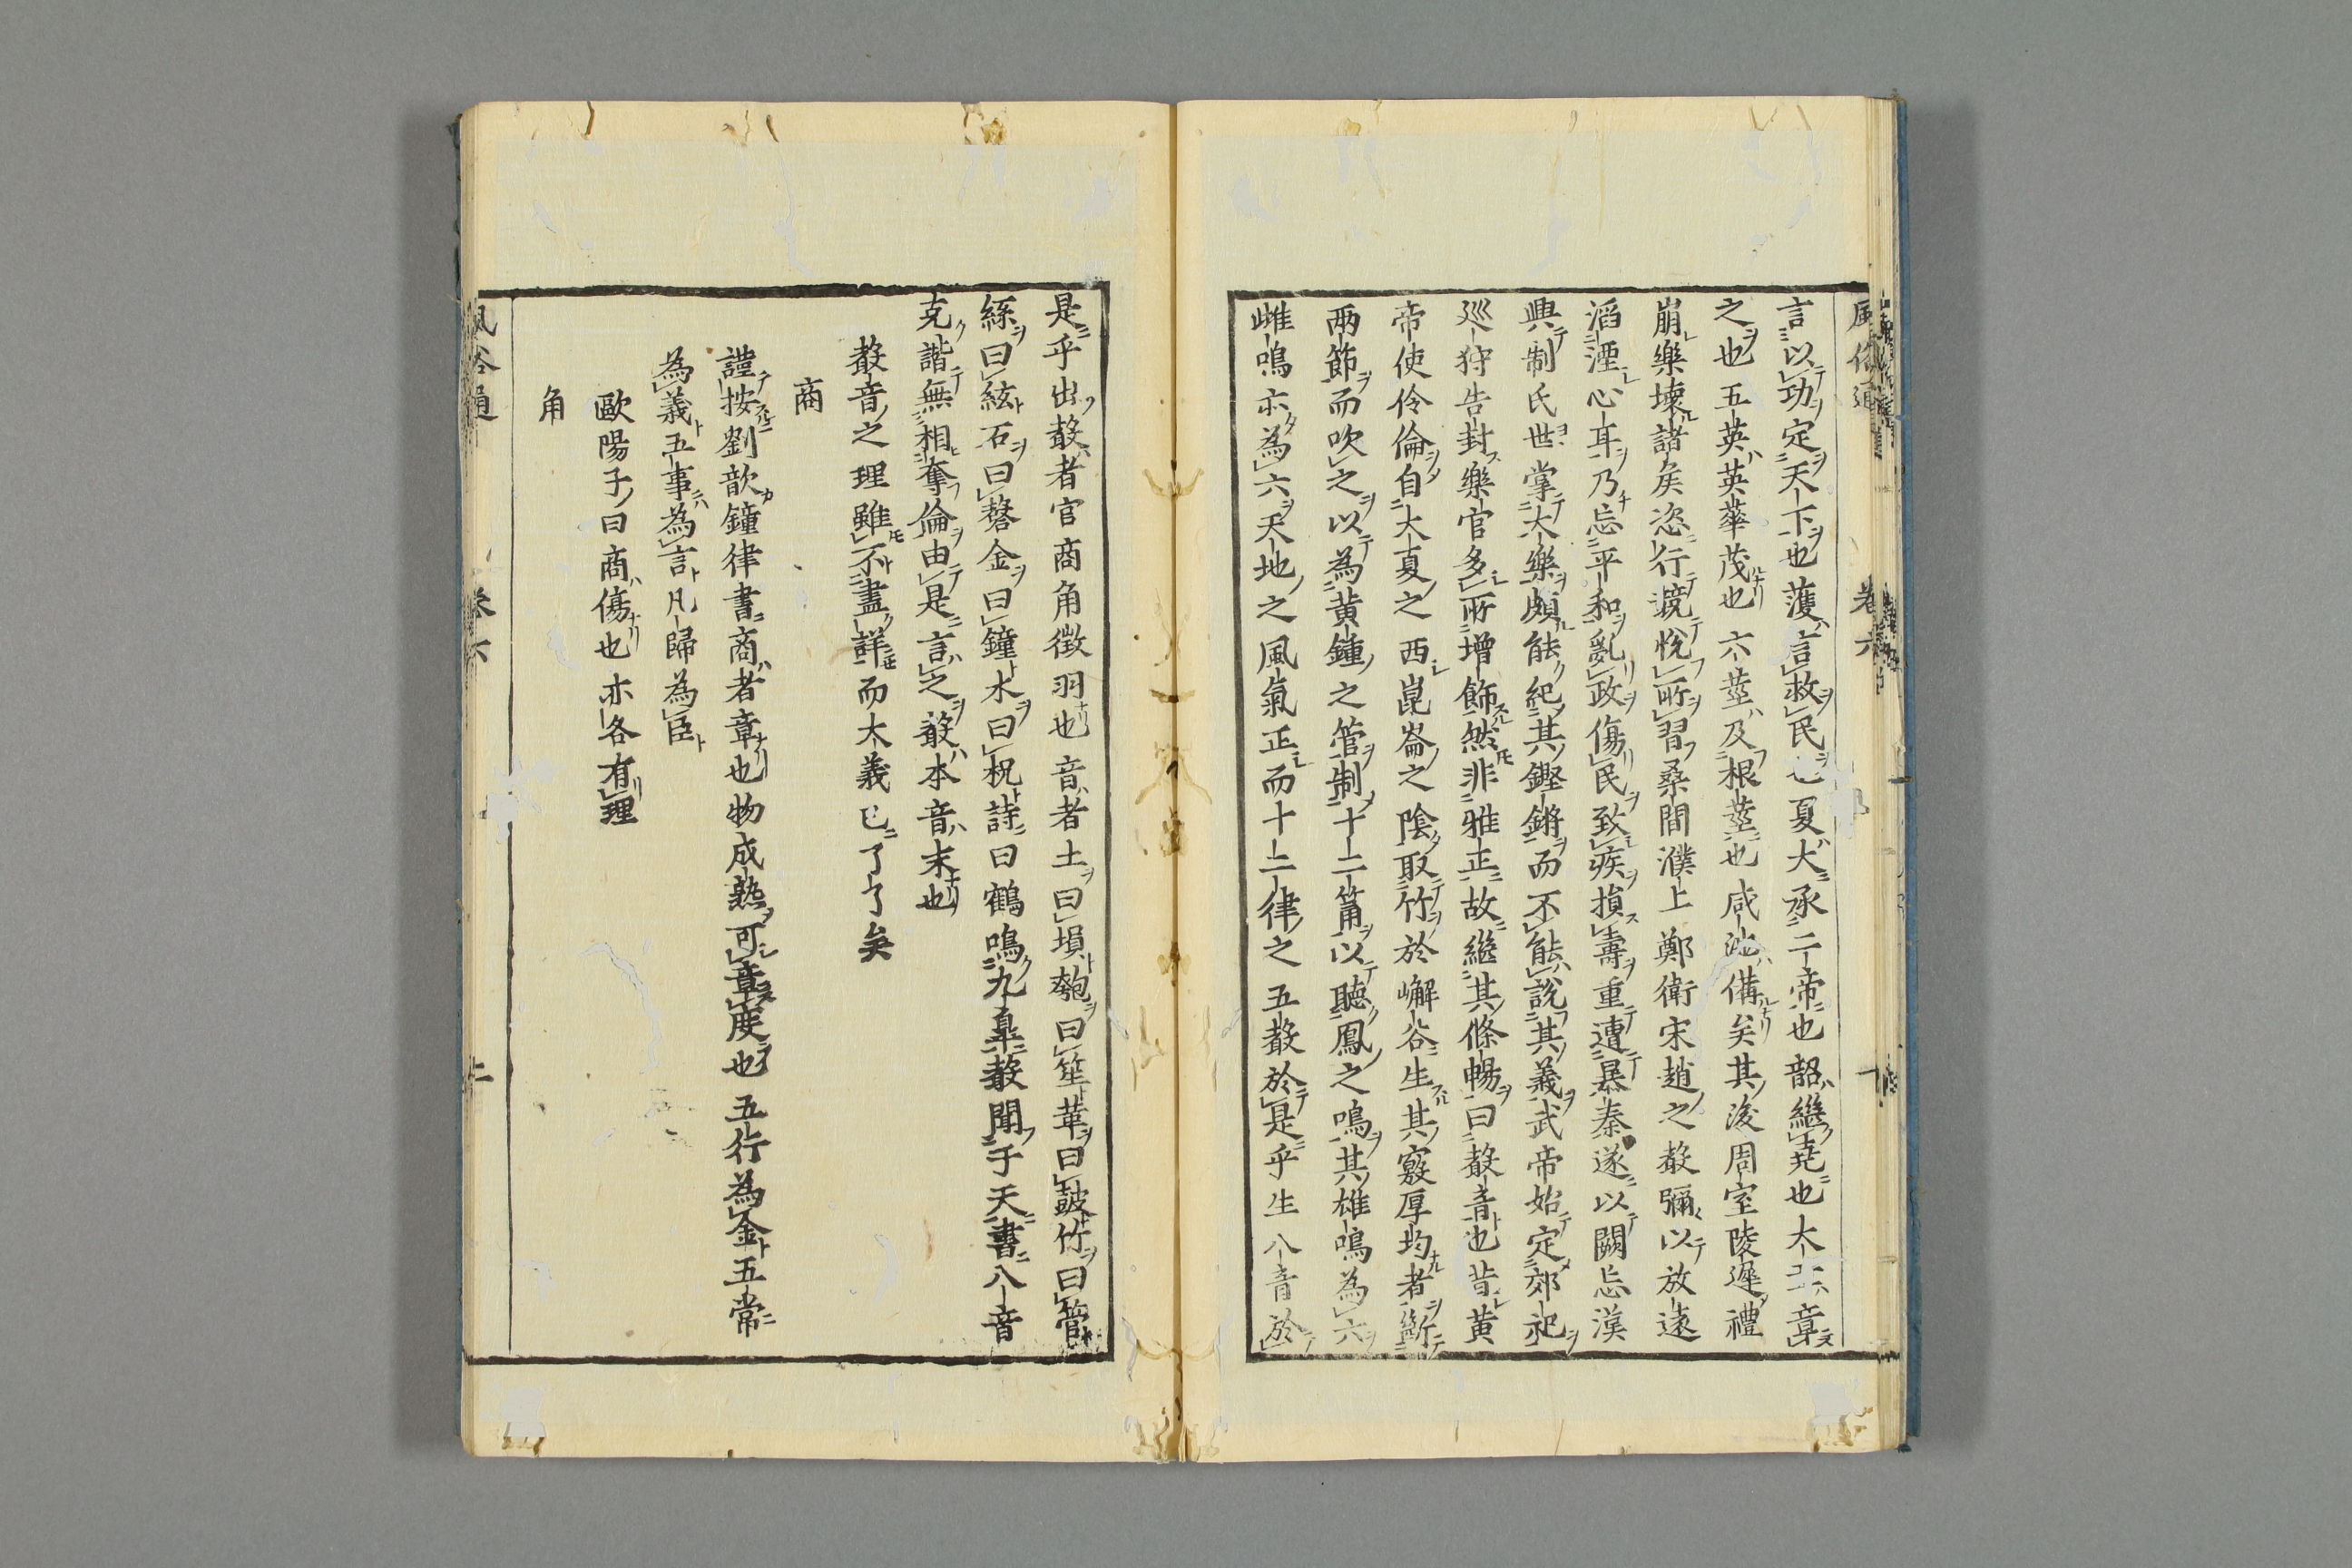 風俗通 卷六 一
言以功定天下也護言救民也夏大承二帝也韶繼堯也大章章
之也五英英華茂也六莖及根莖也咸池備矣其後周室陵遲禮
崩樂壞諸矦恣行競悅所習桑間濮上鄭衛宋趙之聲彌以放遠
滔湮心耳乃忘平和亂政傷民致疾損壽重遭暴秦遂以闕忘漢
興制氏世掌大樂頗能紀其鏗鏘而不能說其義武帝始定郊祀
廵狩告封樂官多所增飾然非雅正故繼其條暢曰聲音也昔黃
帝使伶倫自大夏之西崑崙之陰取竹於嶰谷生其竅厚均者斷
兩節而吹之以為黃鍾之管制十二筩以聽鳳之鳴其雄鳴為六
雌鳴亦為六天地之風氣正而十二律之五聲於是乎生八音於
是乎出聲者官商角徵羽也音者土曰塤匏曰笙革曰鼓竹曰管
絲曰絃石曰磬金曰鐘木曰柷詩曰鶴鳴九臯聲聞于天書八音
克諧無相奪倫由是言之聲本音末也
聲音之理雖不盡詳而大義已了了矣
商
謹按劉歆鐘律書商者章也物成熟可章度也五行為金五常
為義五事為言凡歸為臣
歐陽子曰商傷也亦各有理
角
風俗通 卷六 二